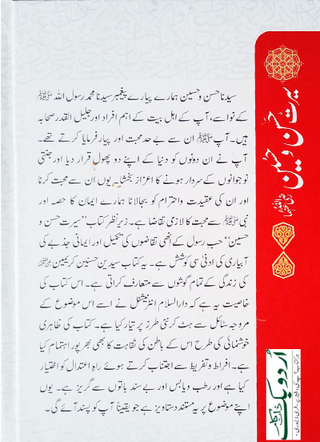 سیدنا حسن و حسین ہمارے پیارے پیغمبر سیدنا محمد رسول اللہ ﷺ
کے نواسے، آپ کے اہل بیت کے اہم افراد اور جلیل القدر صحابہ
ہیں۔ آپ ﷺ ان سے بے حد محبت اور پیار فرمایا کرتے تھے۔
آپ نے ان دونوں کو دنیا کے اپنے دو پھول قرار دیا اور جنتی
نوجوانوں کے سردار ہونے کا اعزاز بخشا۔ یوں ان سے محبت کرنا
اور ان کی عقیدت و احترام کو بجالانا ہمارے ایمان کا حصہ اور
نبی ﷺ سے محبت کا لازمی تقاضا ہے۔ زیر نظر کتاب "سیرت حسن و
حسین" حب رسول کے انھی تقاضوں کی تکمیل اور ایمانی جذبے کی
آبیاری کی ادنیٰ سی کوشش ہے۔ یہ کتاب سیدین حسنین کریمین
کی زندگی کے تمام گوشوں سے متعارف کراتی ہے۔ اس کتاب کی
خاصیت یہ ہے کہ دارالسلام انٹرنیشنل نے اسے اس موضوع کے
مروجہ سٹائل سے ہٹ کر نئی طرز پر تیار کیا ہے۔ کتاب کی ظاہری
خوشنمائی کی طرح اس کے باطن کی نقاہت کا بھی بھرپور اہتمام کیا
ہے۔ افراط و تفریط سے اجتناب کرتے ہوئے راہ اعتدال کو اختیار
کیا ہے اور رطب و یابس اور بے سند باتوں سے گریز ہے۔ یوں
اپنے موضوع پر یہ مستند دستاویز ہے جو یقیناً آپ کو پسند آئے گی۔
سیرت حسن و حسین
اردو بک